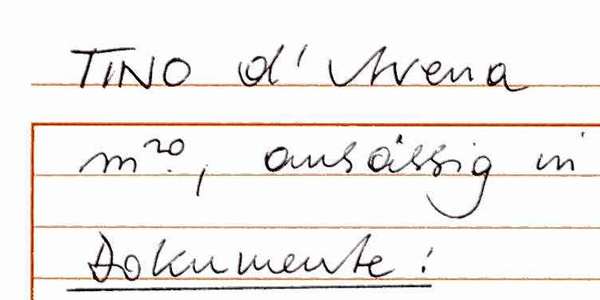 TINO d'Avena
m.ro, ansässig in
Dokumente: